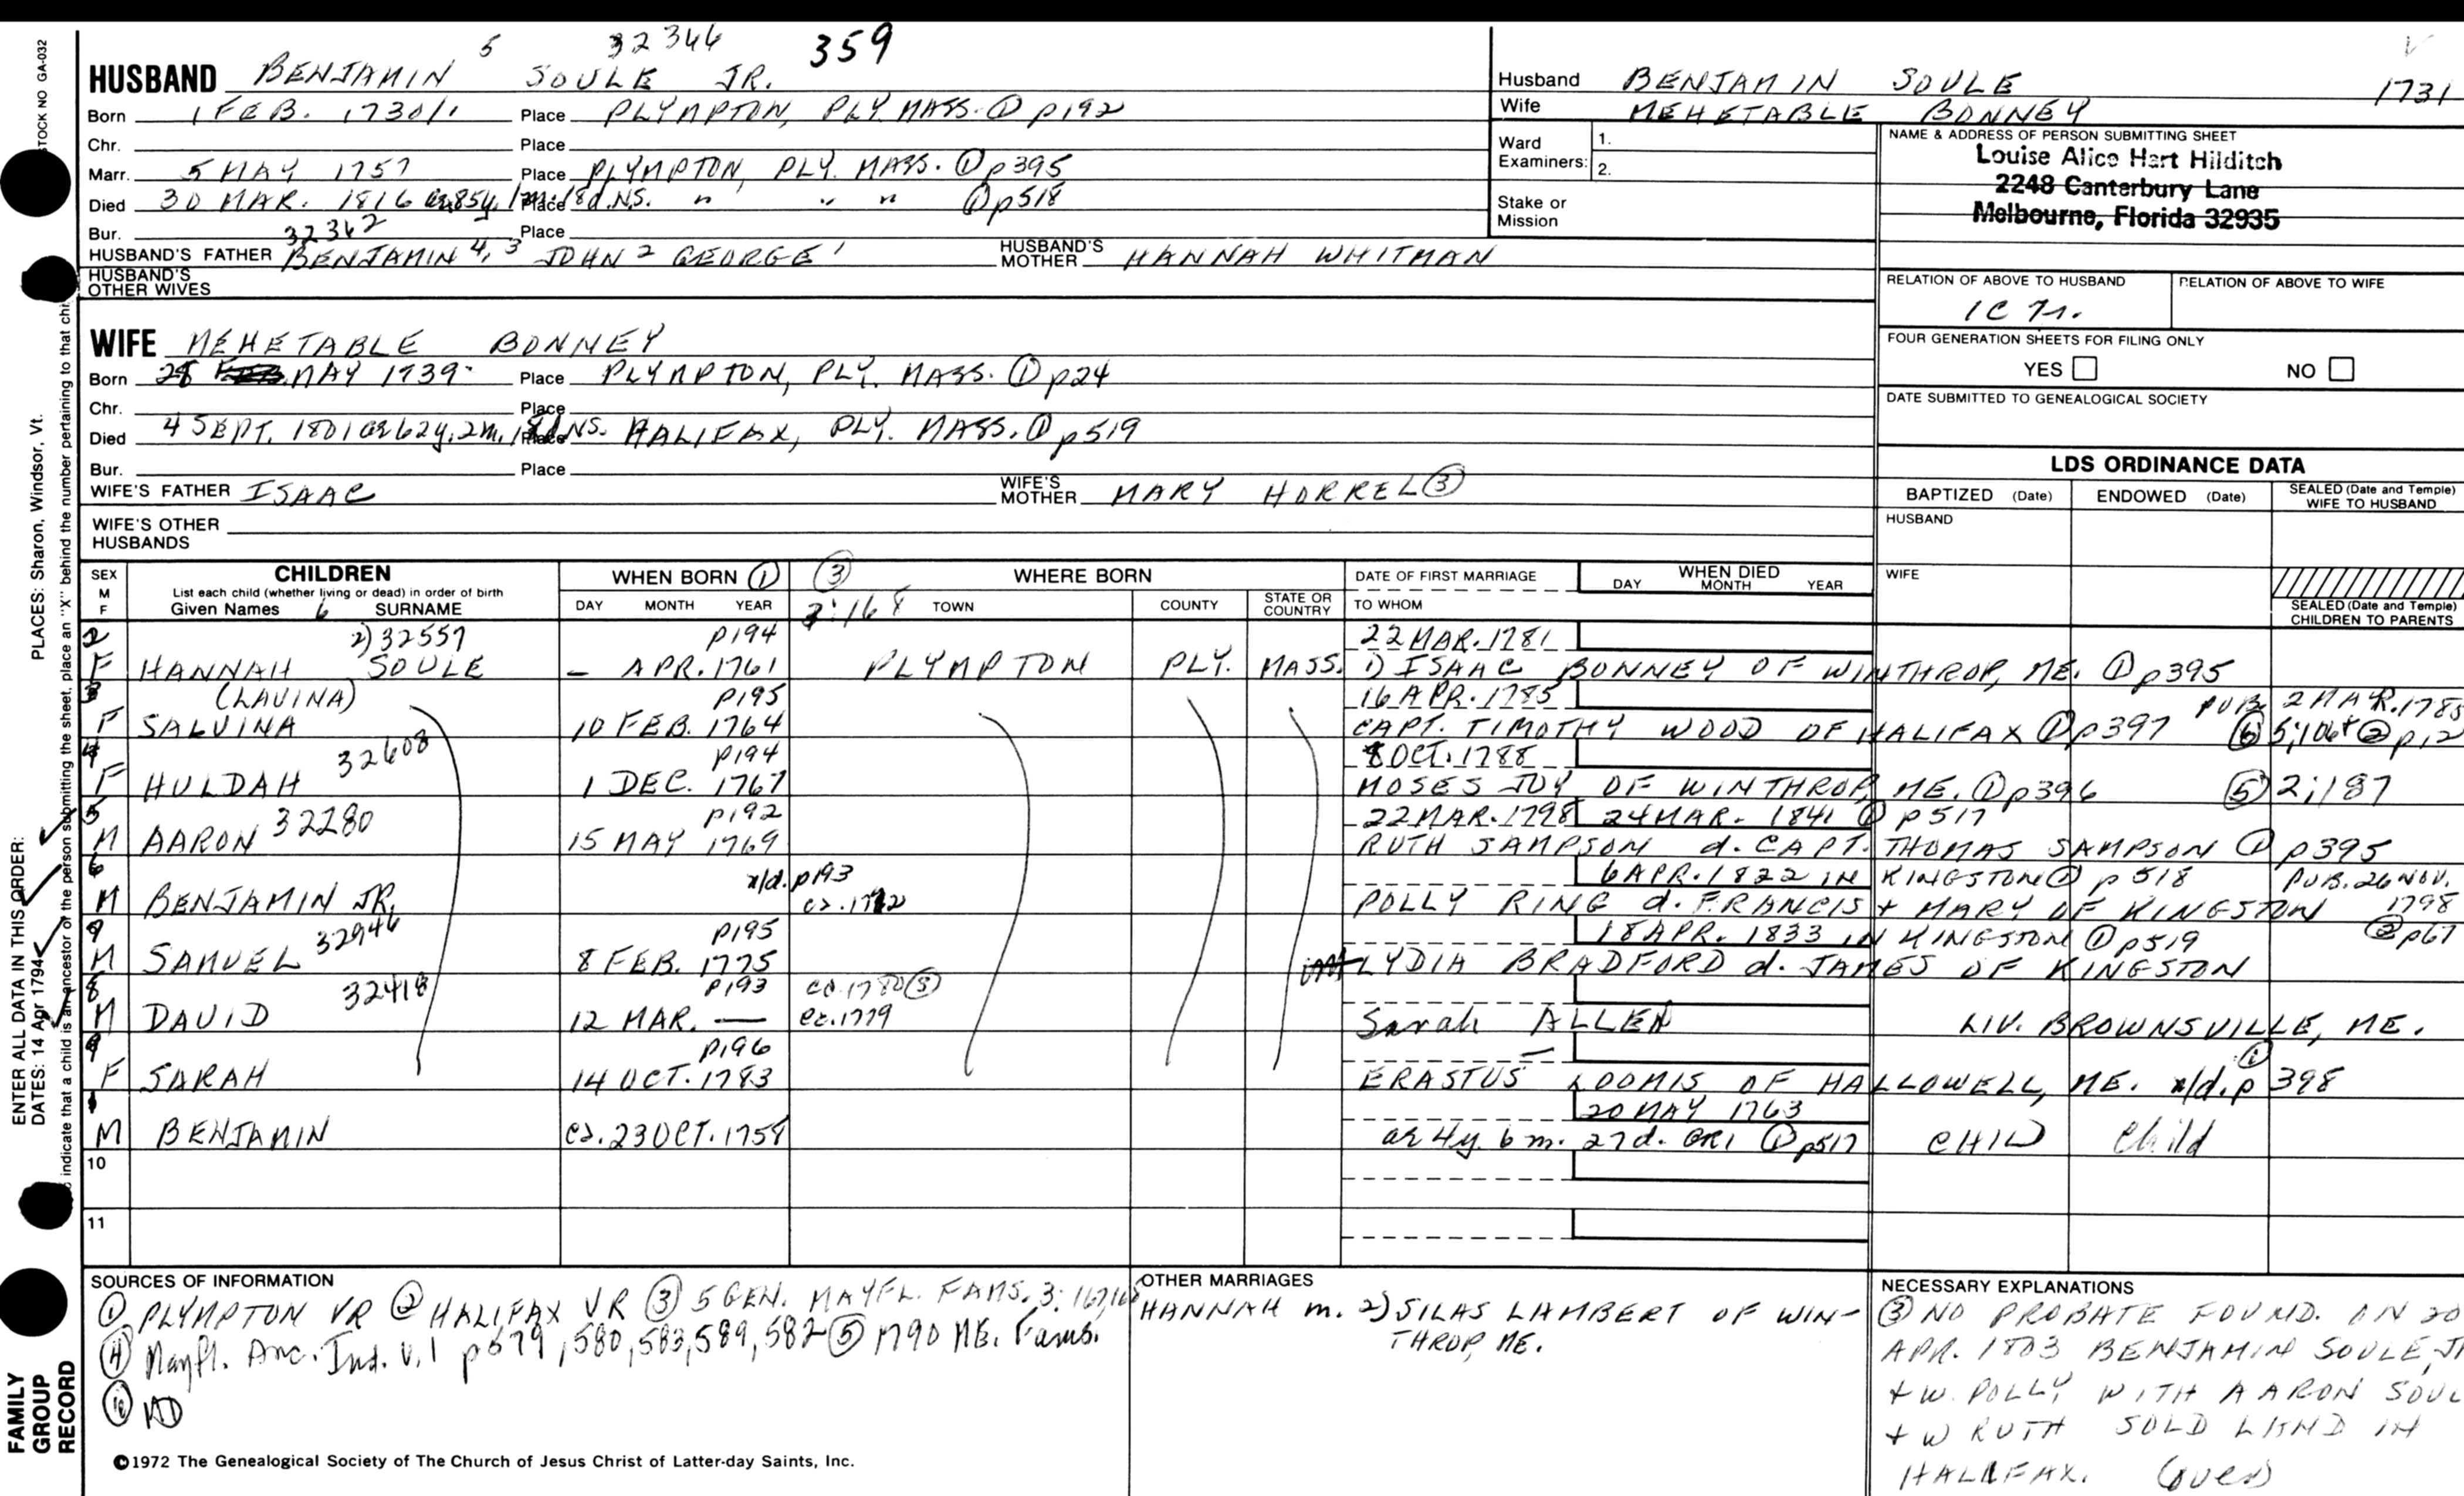 5 32346 359
HUSBAND BENJAMIN SOULE JR.
Born 1 FEB. 1730/1 Place PLYMPTON, PLY. MASS. ① p192
Chr. Place
Marr. 5 MAY 1757 Place PLYMPTON, PLY. MASS. ① p395
Died 30 MAR. 1816 ae 85y, 1m. 18d. N.S. Place " " " ① p518
Bur. Place
32362
HUSBAND'S FATHER BENJAMIN 4, 3 JOHN 2 GEORGE 1 HUSBAND'S MOTHER HANNAH WHITMAN
HUSBAND'S OTHER WIVES
WIFE MEHETABLE BONNEY
Born 28 MAY 1739 Place PLYMPTON, PLY. MASS. ① p24
Chr. Place
Died 4 SEPT. 1801 ae 62y, 2m, NS. Place HALIFAX, PLY. MASS. ① p519
Bur. Place
WIFE'S FATHER ISAAC WIFE'S MOTHER MARY HORREL ③
WIFE'S OTHER HUSBANDS
Husband BENJAMIN SOULE 1731
Wife MEHETABLE BONNEY
Ward Examiners: 1. 2.
Stake or Mission
NAME & ADDRESS OF PERSON SUBMITTING SHEET
Louise Alice Hart Hilditch
2248 Canterbury Lane
Melbourne, Florida 32935
RELATION OF ABOVE TO HUSBAND RELATION OF ABOVE TO WIFE
1C
FOUR GENERATION SHEETS FOR FILING ONLY
YES NO
DATE SUBMITTED TO GENEALOGICAL SOCIETY
LDS ORDINANCE DATA
BAPTIZED (Date) ENDOWED (Date) SEALED (Date and Temple) WIFE TO HUSBAND
HUSBAND
WIFE
SEALED (Date and Temple) CHILDREN TO PARENTS
SEX M F CHILDREN WHEN BORN ① ③ WHERE BORN DATE OF FIRST MARRIAGE WHEN DIED DAY MONTH YEAR
List each child (whether living or dead) in order of birth
Given Names 6 SURNAME DAY MONTH YEAR 3:168 TOWN COUNTY STATE OR COUNTRY TO WHOM
2 2) 32557 p194 22 MAR. 1781
F HANNAH SOULE – APR. 1761 PLYMPTON PLY. MASS. 1) ISAAC BONNEY OF WINTHROP, ME. ① p395
3 (LAVINA) p195 16 APR. 1785 PUB. 2 MAR. 1785
F SALVINA 10 FEB. 1764 CAPT. TIMOTHY WOOD OF HALIFAX ① p397 ⑥ ② p12
4 32608 p194 8 OCT. 1788
F HULDAH 1 DEC. 1767 MOSES JOY OF WINTHROP, ME. ① p396 ⑤ 2:187
5 32280 p192 22 MAR. 1798 24 MAR. 1841 ① p517
M AARON 15 MAY 1769 RUTH SAMPSON d. CAPT. THOMAS SAMPSON ① p395
6 n/d. p193 6 APR. 1822 IN KINGSTON ① p518 PUB. 26 NOV. 1798
M BENJAMIN JR. ca. 1772 POLLY RING d. FRANCIS + MARY OF KINGSTON
7 32946 p195 18 APR. 1833 IN KINGSTON ① p519 ② p67
M SAMUEL 8 FEB. 1775 LYDIA BRADFORD d. JAMES OF KINGSTON
8 32418 p193 ca. 1780 ③
M DAVID 12 MAR. — ca. 1779 Sarah ALLEN LIV. BROWNSVILLE, ME.
9 p196 ①
F SARAH 14 OCT. 1783 ERASTUS LOOMIS OF HALLOWELL, ME. n/d. p 398
1 20 MAY 1763
M BENJAMIN ca. 23 OCT. 1758 ae 4y. 6m. 27d. GR1 ① p517 CHILD Child
10
11
SOURCES OF INFORMATION
① PLYMPTON VR ② HALIFAX VR ③ 5 GEN. MAYFL. FAMS. 3: 167,168
④ Mayfl. Anc. Ind. V.1 p579, 580, 583, 589, 582 ⑤ 1790 ME. Fams.
⑥
OTHER MARRIAGES
HANNAH m. 2) SILAS LAMBERT OF WIN-
THROP, ME.
NECESSARY EXPLANATIONS
③ NO PROBATE FOUND. ON 20
APR. 1803 BENJAMIN SOULE, JR
+ W. POLLY WITH AARON SOUL
+ W RUTH SOLD LAND IN
HALIFAX. (over)
©1972 The Genealogical Society of The Church of Jesus Christ of Latter-day Saints, Inc.
STOCK NO GA-032
PLACES: Sharon, Windsor, Vt.
ENTER ALL DATA IN THIS ORDER:
DATES: 14 Apr 1794
indicate that a child is an ancestor of the person submitting the sheet, place an "X" behind the number pertaining to that
FAMILY
GROUP
RECORD